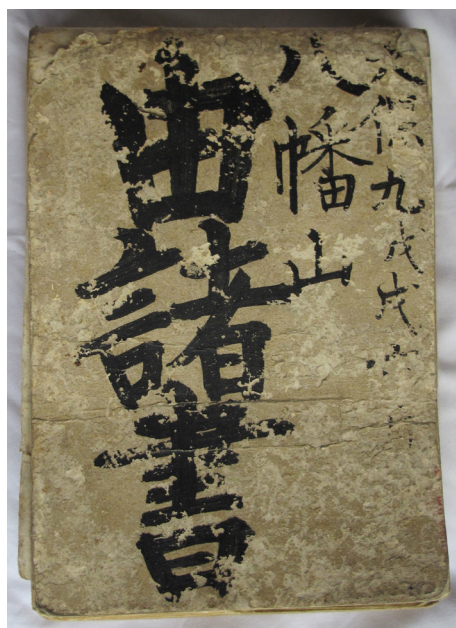 天保九戊戌
八幡山
由諸書